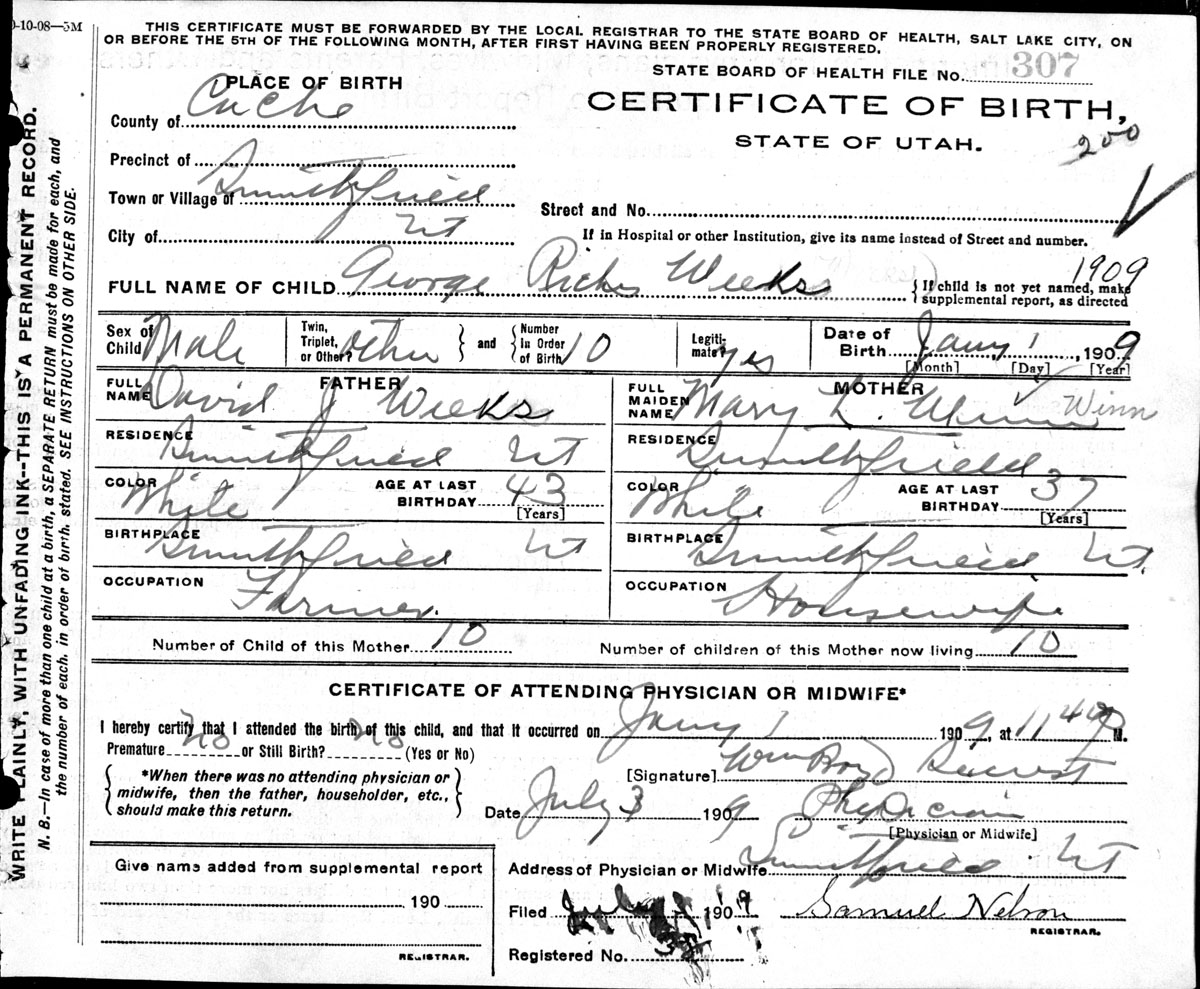 0-10-08—5M
THIS CERTIFICATE MUST BE FORWARDED BY THE LOCAL REGISTRAR TO THE STATE BOARD OF HEALTH, SALT LAKE CITY, ON
OR BEFORE THE 5TH OF THE FOLLOWING MONTH, AFTER FIRST HAVING BEEN PROPERLY REGISTERED.
STATE BOARD OF HEALTH FILE No. 307
PLACE OF BIRTH
CERTIFICATE OF BIRTH,
STATE OF UTAH.
200
County of Cache
Precinct of
Town or Village of Smithfield
City of Ut
Street and No.
If in Hospital or other Institution, give its name instead of Street and number.
1909
FULL NAME OF CHILD George Weeks
{If child is not yet named, make
supplemental report, as directed
Sex of Child Male
Twin, Triplet, or Other? other } and { Number In Order of Birth 10
Legitimate? yes
Date of Birth Jany 1, 1909
[Month] [Day] [Year]
FATHER
FULL NAME David J Weeks
RESIDENCE Smithfield Ut
COLOR White AGE AT LAST BIRTHDAY 43
[Years]
BIRTHPLACE Smithfield Ut
OCCUPATION Farmer.
MOTHER
FULL MAIDEN NAME Mary L. Winn Winn
RESIDENCE Smithfield
COLOR White AGE AT LAST BIRTHDAY 37
[Years]
BIRTHPLACE Smithfield Ut.
OCCUPATION Housewife
Number of Child of this Mother 10
Number of children of this Mother now living 10
CERTIFICATE OF ATTENDING PHYSICIAN OR MIDWIFE*
I hereby certify that I attended the birth of this child, and that it occurred on Jany 1 1909, at 11 P M.
Premature no or Still Birth? no (Yes or No)
{ *When there was no attending physician or
midwife, then the father, householder, etc.,
should make this return. }
[Signature] Wm Boyd
Date July 3 1909 Physician
[Physician or Midwife]
Address of Physician or Midwife Smithfield Ut
Filed July 1909 Samuel Nelson
REGISTRAR.
Registered No.
Give name added from supplemental report
190
REGISTRAR.
WRITE PLAINLY, WITH UNFADING INK--THIS IS A PERMANENT RECORD.
N. B.—In case of more than one child at a birth, a SEPARATE RETURN must be made for each, and
the number of each. in order of birth. stated. SEE INSTRUCTIONS ON OTHER SIDE.